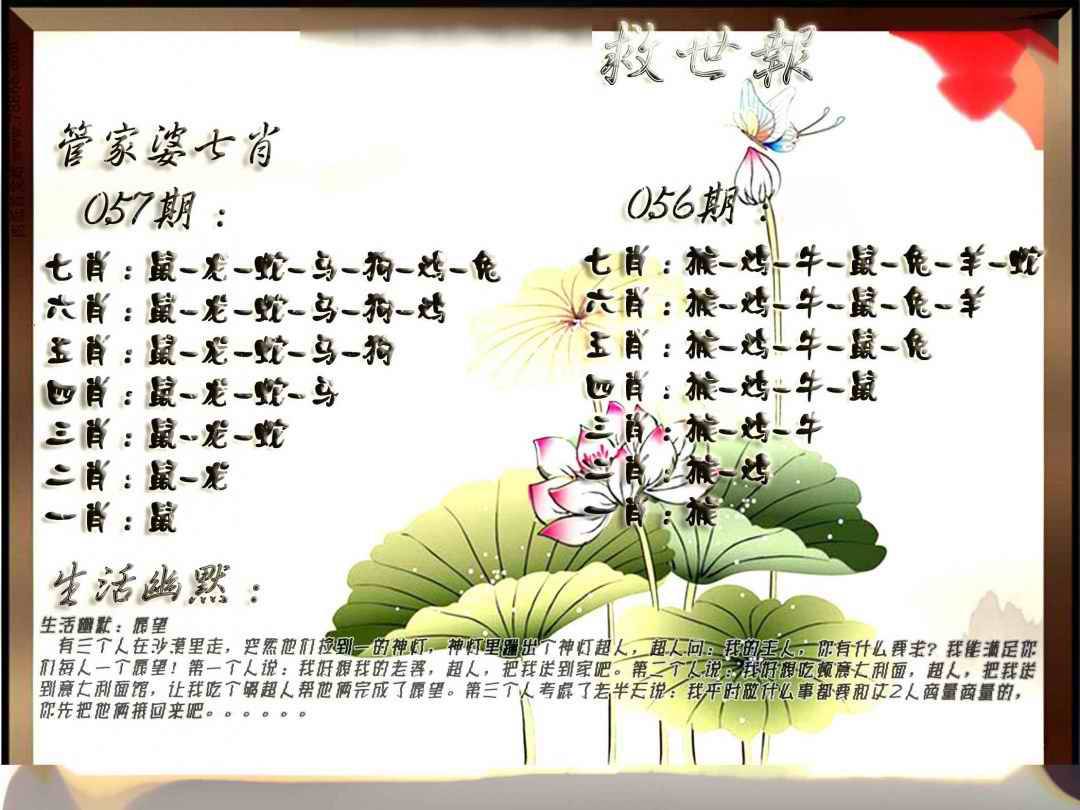 救世報
管家婆七肖
057期：
七肖：鼠-龙-蛇-马-狗-鸡-兔
六肖：鼠-龙-蛇-马-狗-鸡
五肖：鼠-龙-蛇-马-狗
四肖：鼠-龙-蛇-马
三肖：鼠-龙-蛇
二肖：鼠-龙
一肖：鼠
056期：
七肖：猴-鸡-牛-鼠-兔-羊-蛇
六肖：猴-鸡-牛-鼠-兔-羊
五肖：猴-鸡-牛-鼠-兔
四肖：猴-鸡-牛-鼠
三肖：猴-鸡-牛
二肖：猴-鸡
一肖：猴
生活幽默：
生活幽默：愿望
有三个人在沙漠里走，突然他们捡到一的神灯，神灯里蹦出个神灯超人，超人问：我的主人，你有什么要求？我能满足你
们每人一个愿望！第一个人说：我好想我的老婆，超人，把我送到家吧。第二个人说：我好想吃顿意大利面，超人，把我送
到意大利面馆，让我吃个够超人帮他俩完成了愿望。第三个人考虑了老半天说：我平时做什么事都要和这2人商量商量的，
你先把他俩接回来吧。。。。。。